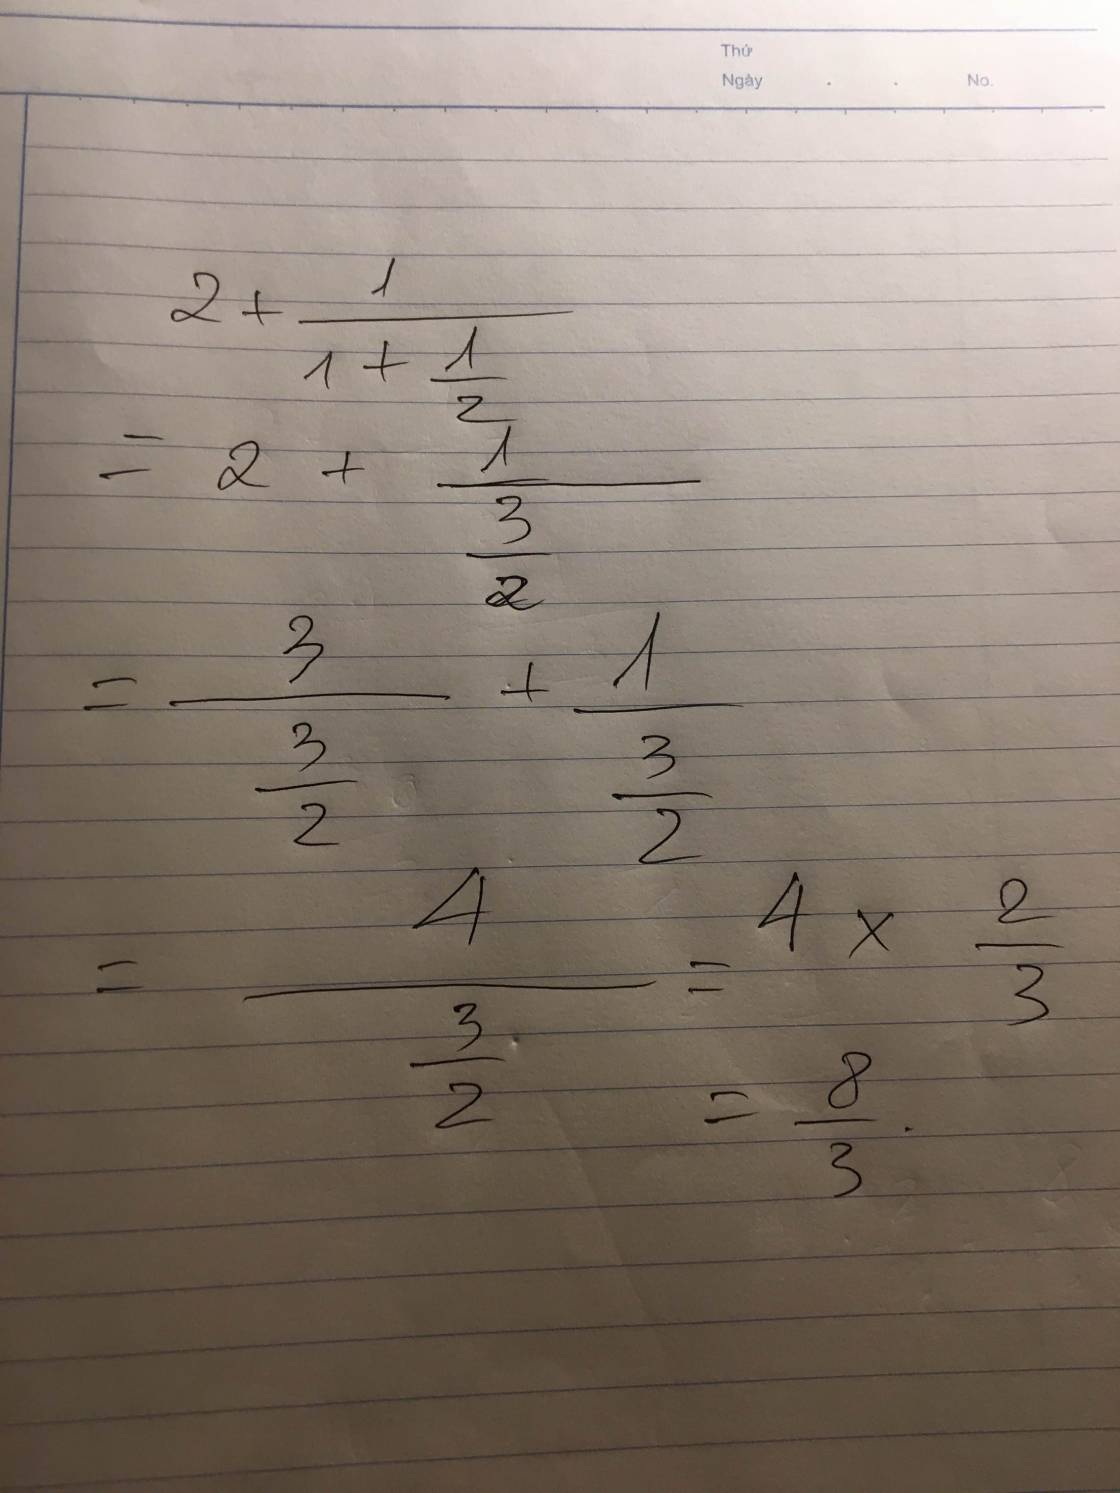 Thứ
Ngày . . No.
2 + \frac{1}{1 + \frac{1}{2}}
= 2 + \frac{1}{\frac{3}{2}}
= \frac{3}{\frac{3}{2}} + \frac{1}{\frac{3}{2}}
= \frac{4}{\frac{3}{2}} = 4 × \frac{2}{3}
= \frac{8}{3}.